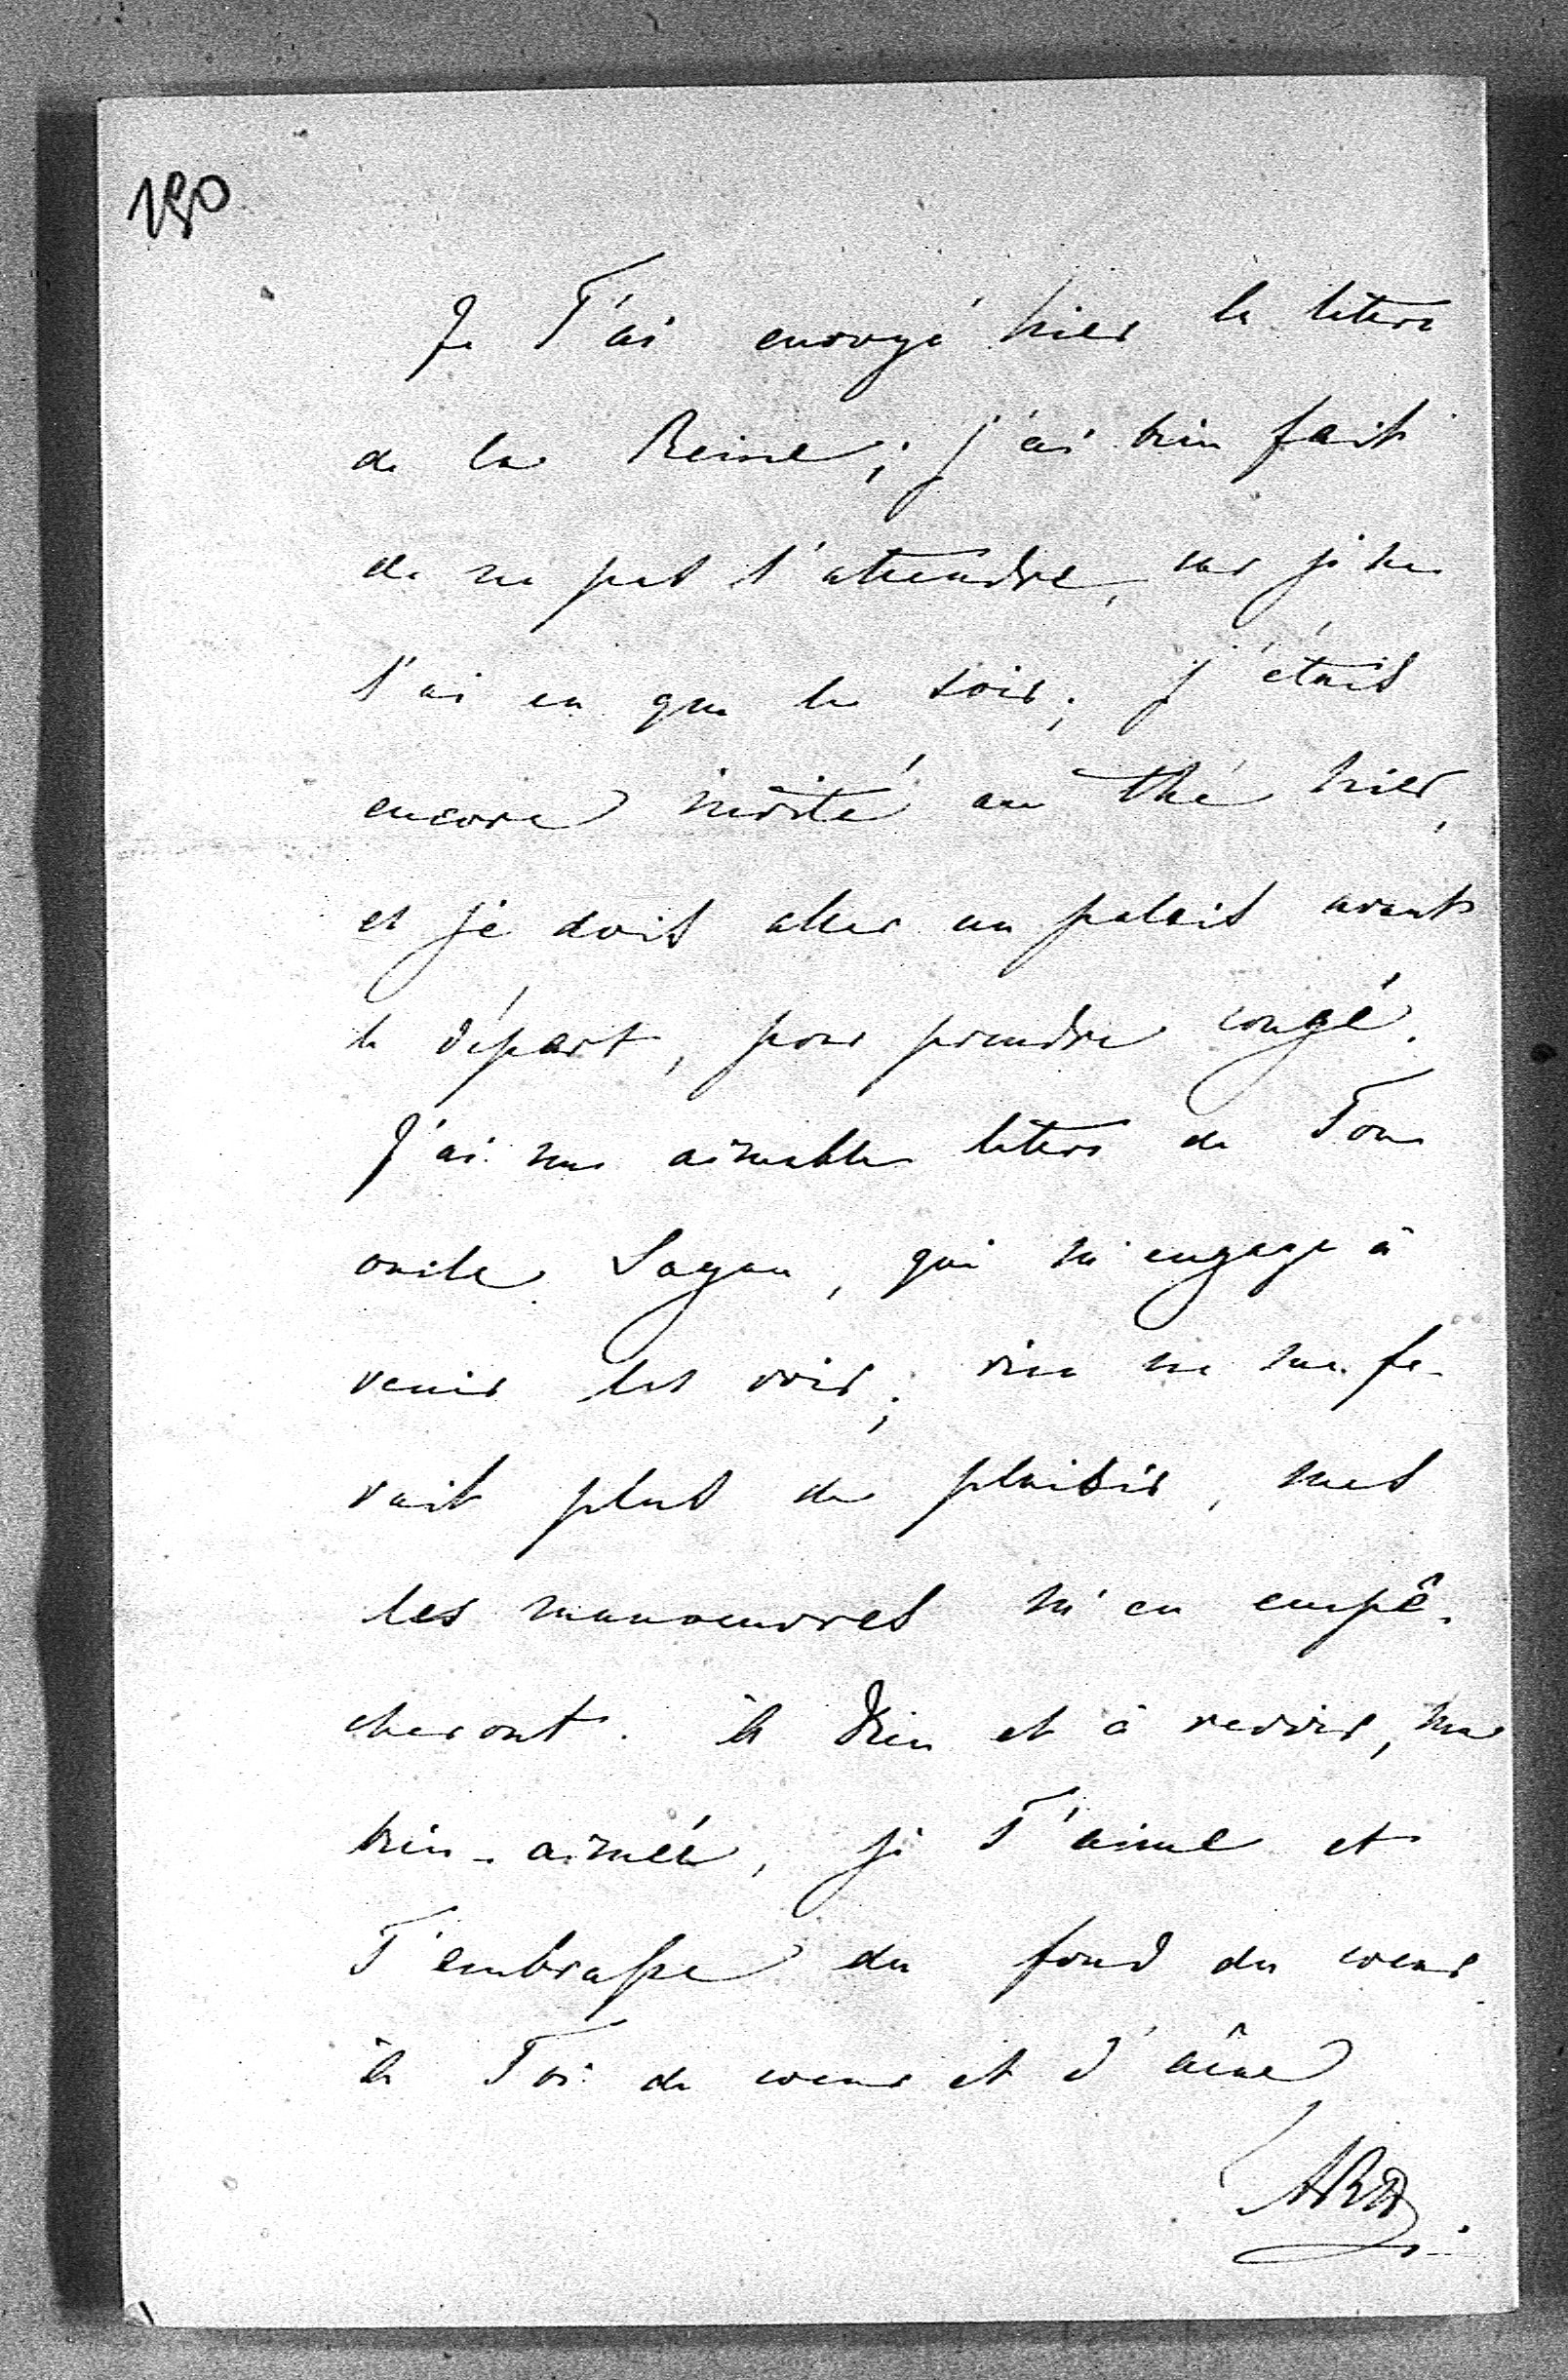 190
Je T'ai envoyé hier la lettre
de la Reine; j'ai bien fait
de ne pas l'attendre, car je ne
l'ai eu que le soir; j'étais
encore invité au thé hier,
et je dois aller au palais avant
le départ, pour prendre congé.
J'ai une aimable lettre de Ton
oncle Sagan, qui m'engage à
venir les voir; rien ne me fe-
rait plus de plaisir, mes
les manoeuvres m'en empê-
cheront. à Dieu et à revoir, ma
bien-aimée, je T'aime et
T'embrasse du fond du coeur
à Toi de coeur et d'âme